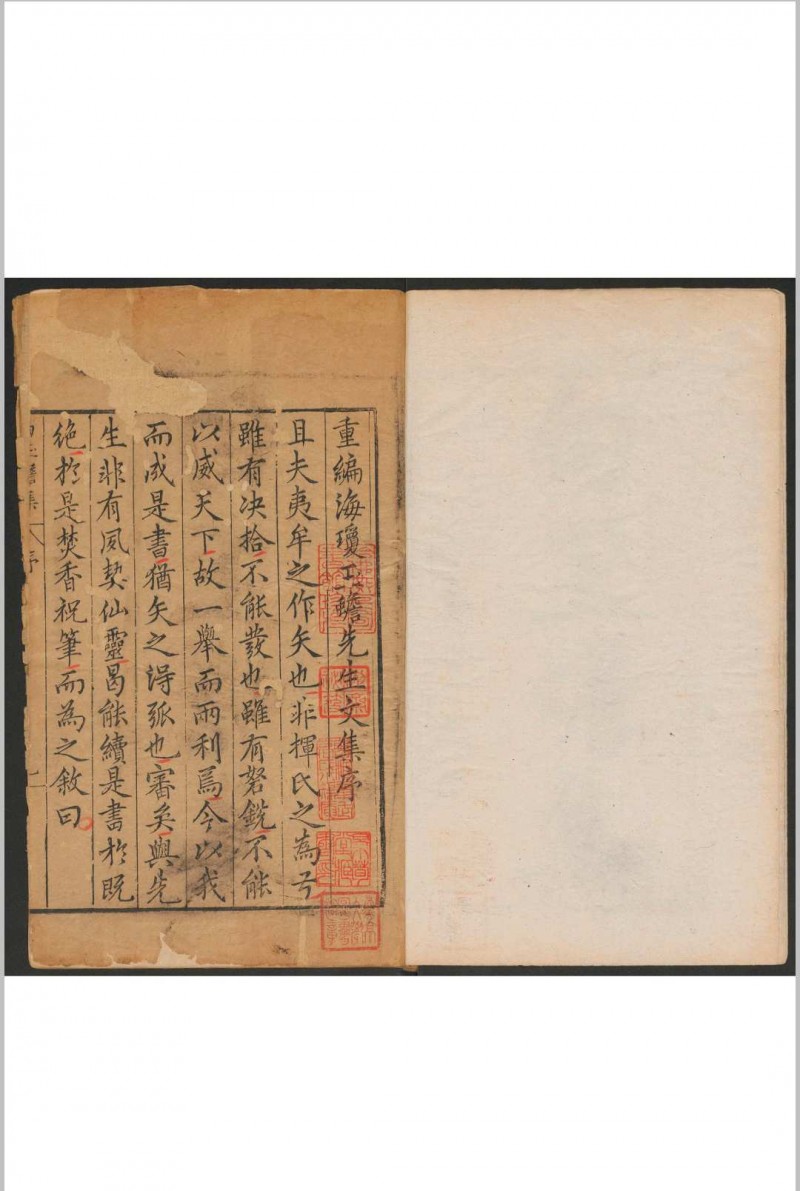 重編海瓊玉蟾先生文集序
且夫夷牟之作矢也非揮氏之為弓
雖有决拾不能發也雖有弩銳不能
以威天下故一舉而兩利焉今以我
而成是書猶矢之得弧也審矣與先
生非有夙契仙靈曷能續是書於既
絶於是焚香祝筆而為之敘曰
蟾集
序